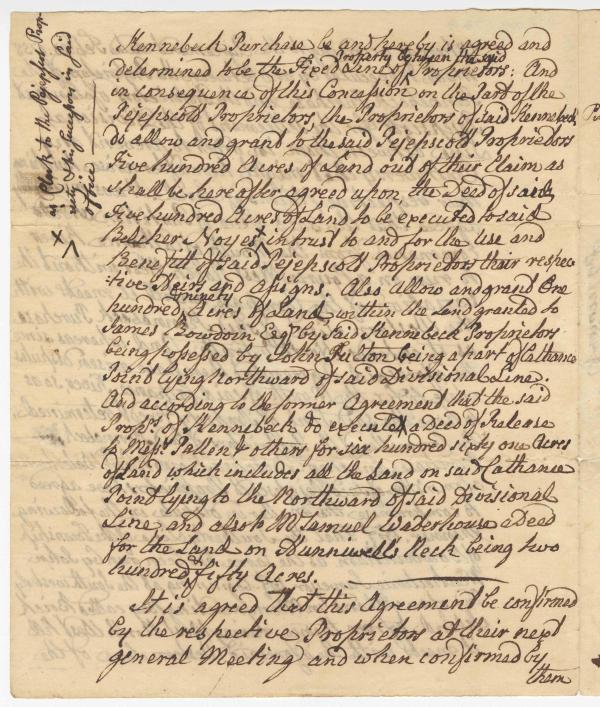 Kennebeck Purchase be and hereby is agreed and
Property between the said
determined to be the Fixed Line of Proprietors: And
in consequence of this Concession on the Part of the
Pejepscott Proprietors, the Proprietors of said Kennebeck
do allow and grant to the said Pejepscott Proprietors
Five hundred Acres of Land out of their Claim as
shall be hereafter agreed upon, the Deed of said
Five hundred Acres of Land to be executed to said
Belcher Noyes x in trust to and for the Use and
Benefitt of said Pejepscott Proprietors their respec
tive Heirs and assigns. Also allow and grant One
& ninety
hundred Acres of Land within the Land granted to
James Bowdoin Esqr by said Kennebeck Proprietors
being possessed by John Fulton being a part of Cathance
Point lying Northward of said Divisional Line.
And according to the former Agreement that the said
Proprs. of Kennebeck do execute a Deed of Release
to Messrs. Patten & others for six hundred sixty one Acres
of Land which includes all the Land on said Cathance
Point lying to the Northward of said Divisional
Line, and also to Mr Samuel Waterhouse a Deed
for the Land on Hunniwell's Neck being two
hundred & fifty Acres.
It is agreed that this Agreement be confirmed
by the respective Proprietors at their next
general Meeting and when confirmed by
them
x as Clerk to the Pejepsct Prop-
& his Successors in said
office